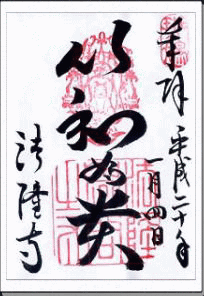 奉拝 平成二十年
一月四日
以和為貴
法隆寺